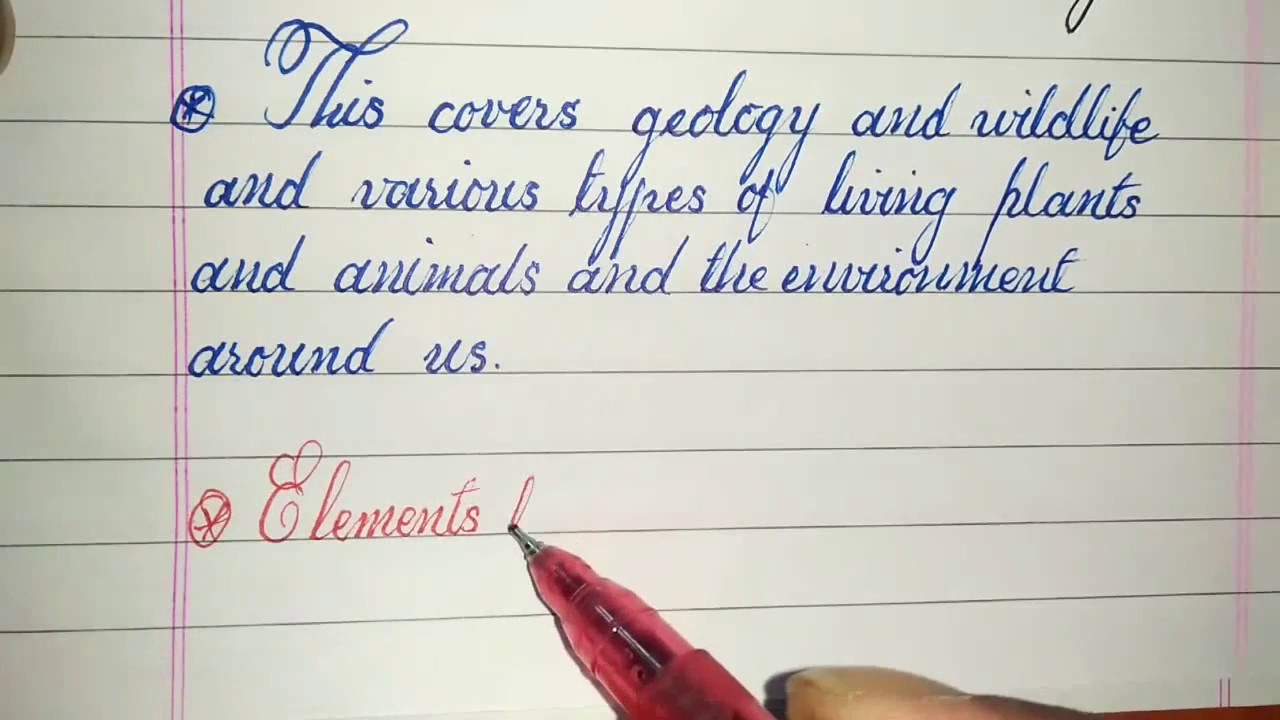 This covers geology and wildlife
and various types of living plants
and animals and the environment
around us.
Elements